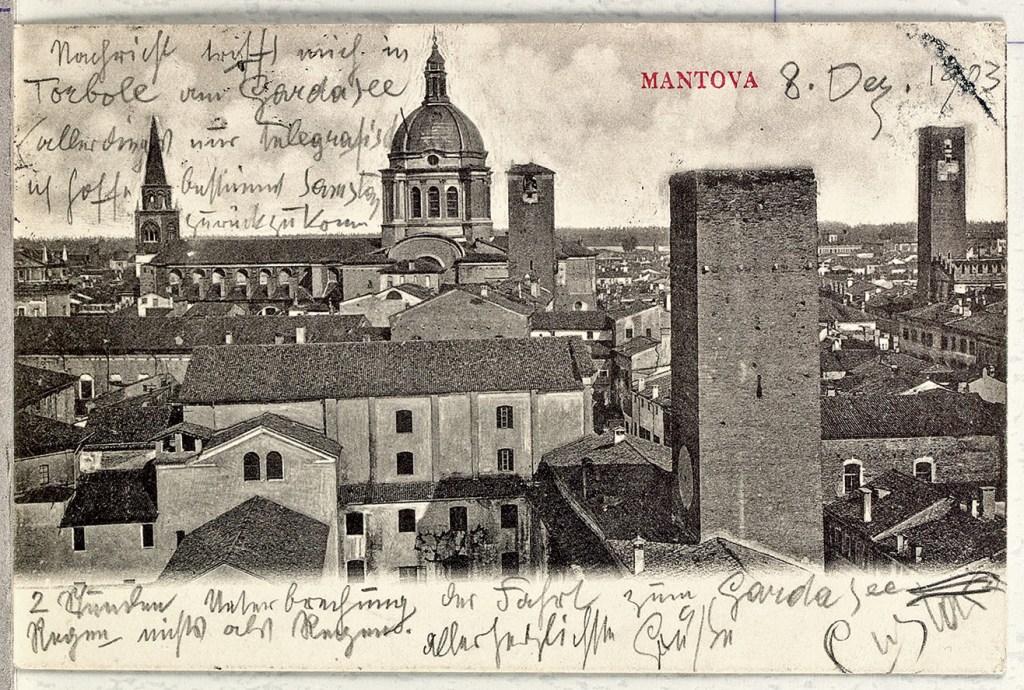 Nachricht trifft mich in
Torbole am Gardasee
allerdings nur telegrafisch
ich hoffe bestimmt Samstag
zurückzukomm
MANTOVA
8. Dez. 1903
2 Stunden Unterbrechung der Fahrt zum Gardasee
Regen nichts als Regen.
allerherzlichste Grüße